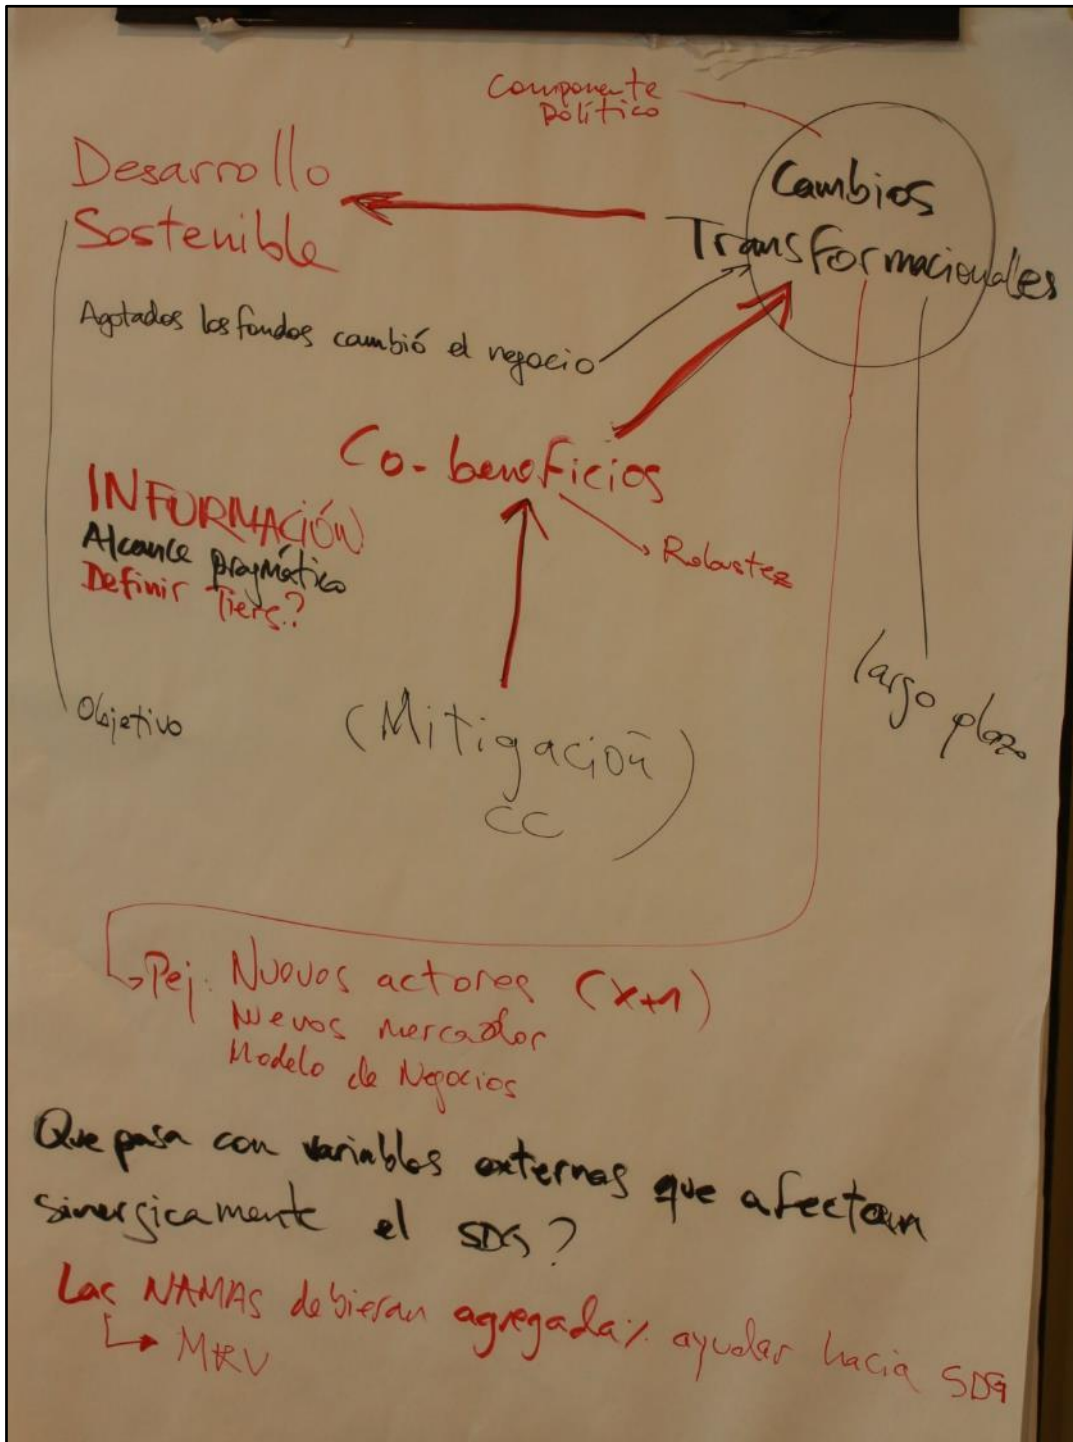 Componente
Político
Desarrollo
Sostenible
Cambios
Transformacionales
Agotados los fondos cambió el negocio
Co-beneficios
INFORMACIÓN
Alcance pragmático
Definir Tiers?
Robustez
largo plazo
Objetivo
(Mitigación)
CC
Pej: Nuevos actores (x+1)
Nuevos mercados
Modelo de Negocios
Que pasa con variables externas que afectan
sinergicamente el SDG?
Las NAMAS debieran agregada% ayudar hacia SDG
MRV